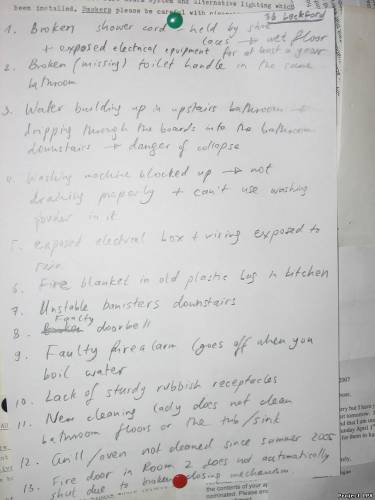 been installed. Smokers please be careful with
36 Beckford
1. Broken shower cord held by shoe
laces → wet floor
+ exposed electrical equipment for at least a year
2. Broken (missing) toilet handle in the same
bathroom
3. Water building up in upstairs bathroom →
dripping through the boards into the bathroom
downstairs → danger of collapse
4. Washing machine blocked up → not
draining properly + can't use washing
powder in it
5. exposed electrical box + wiring exposed to
rain
6. Fire blanket in old plastic bag in kitchen
7. Unstable banisters downstairs
Faulty
8. doorbell
9. Faulty fire alarm (goes off when you
boil water
10. Lack of sturdy rubbish receptacles
11. New cleaning lady does not clean
bathroom floors or the tub/sink
12. Grill/oven not cleaned since summer 2005
13. Fire door in Room 2 does not automatically
shut due to broken closing mechanism
2007
the contents of your
nominated. Please
Project.PPK